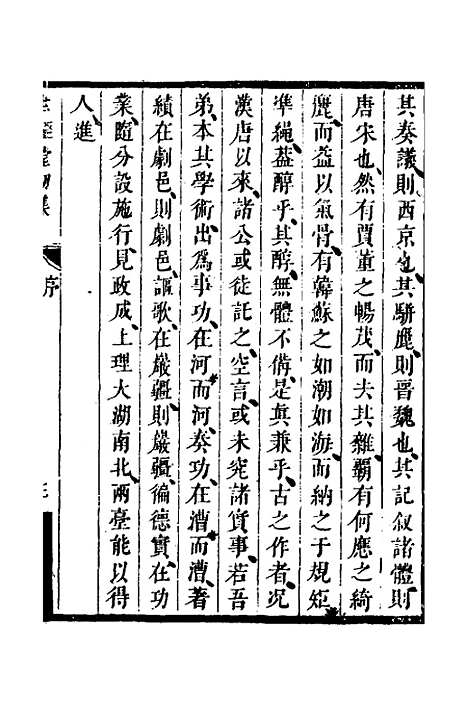 其奏議則西京也其駢麗則晉魏也其記叙諸體則
唐宋也然有賈董之暢茂而去其雜霸有何應之綺
麗而益以氣骨有韓蘇之如潮如海而納之于規矩
準繩蓋醇乎其醇無體不備是眞兼乎古之作者况
漢唐以來諸公或徒託之空言或未究諸實事若吾
弟本其學術出爲事功在河而河奏功在漕而漕著
績在劇邑則劇邑謳歌在巖疆則巖疆徧德實在功
業隨分設施行見政成上理大湖南北兩臺能以得
人進
堂初集
序